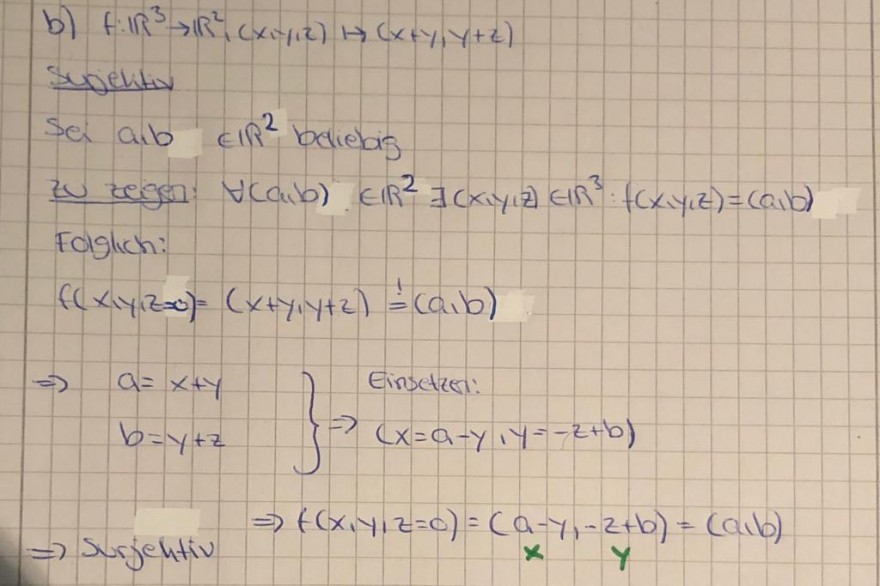 b) f: ℝ³→ℝ², (x,y,z) ↦ (x+y, y+z)
Surjektiv
Sei a,b ∈ℝ² beliebig
Zu zeigen: ∀(a,b) ∈ℝ² ∃(x,y,z) ∈ℝ³: f(x,y,z)=(a,b)
Folglich:
f(x,y,z=0)= (x+y, y+z) =! (a,b)
⇒ a= x+y } Einsetzen:
b=y+z ⇒ (x=a-y, y=-z+b)
⇒ f(x,y,z=0) = (a-y, -z+b) = (a,b)
⇒ Surjektiv x y